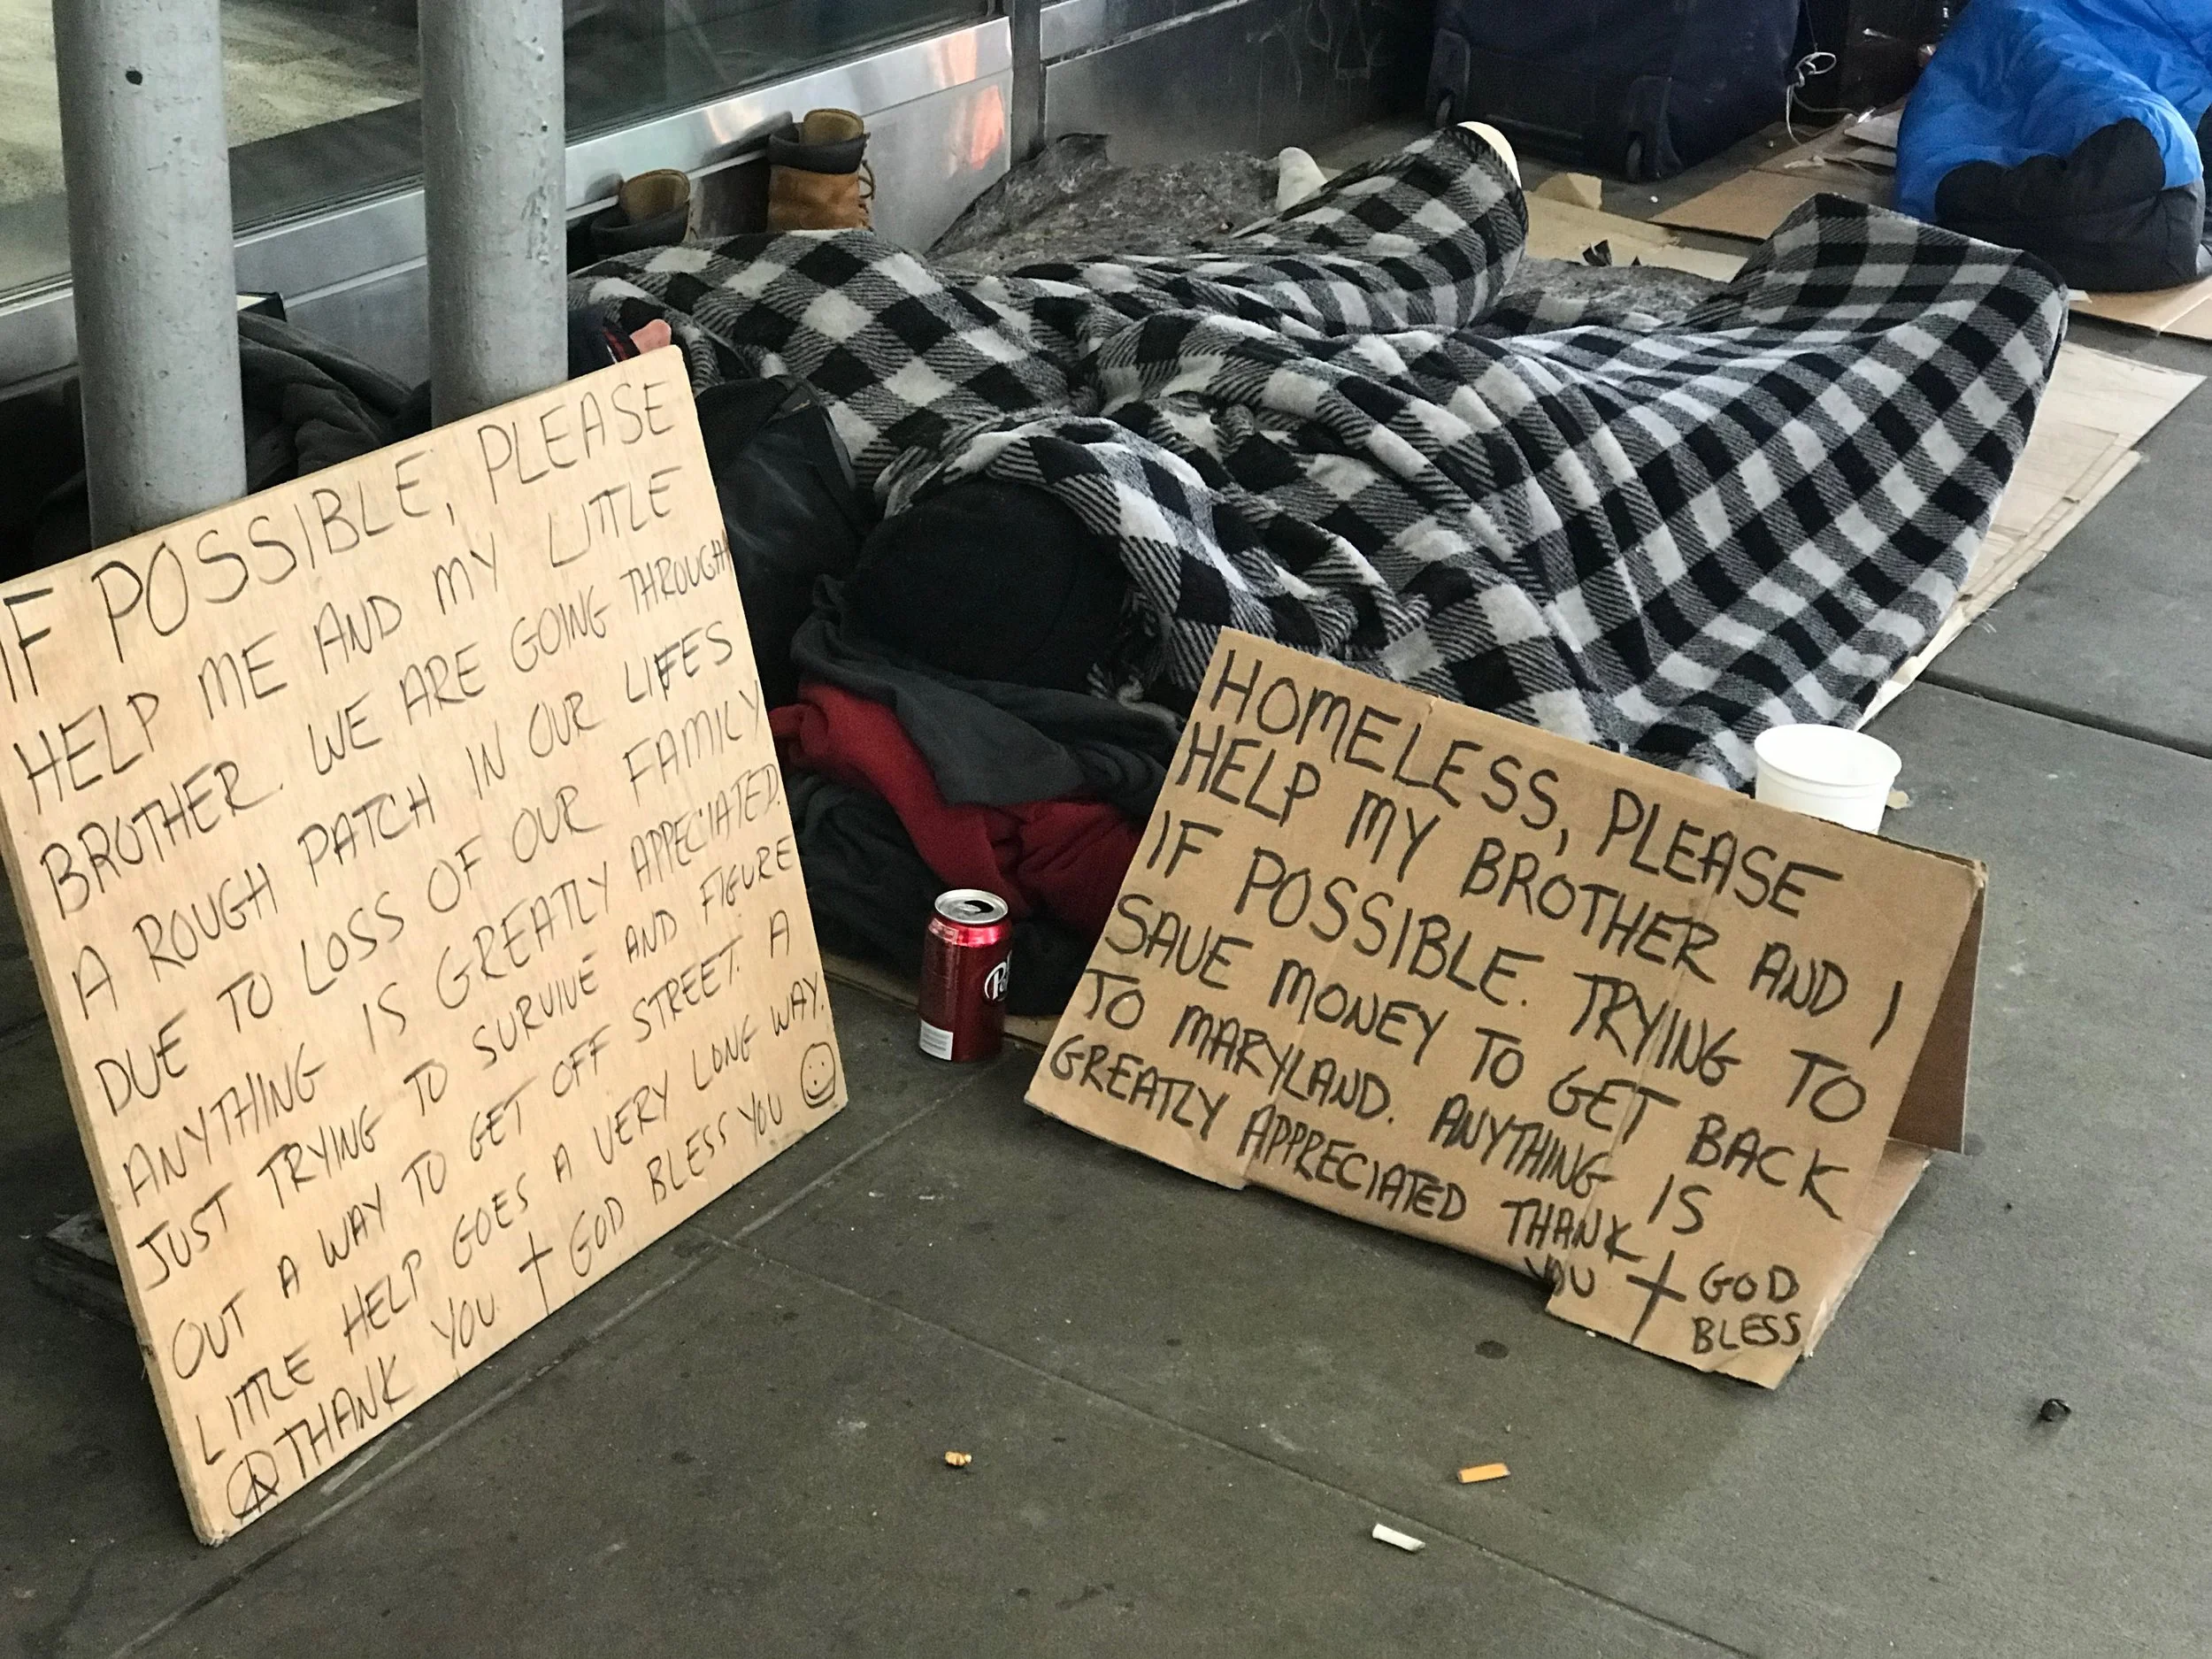 IF POSSIBLE, PLEASE
HELP ME AND MY LITTLE
BROTHER. WE ARE GOING THROUGH
A ROUGH PATCH IN OUR LIFES
DUE TO LOSS OF OUR FAMILY
ANYTHING IS GREATLY APPECIATED.
JUST TRYING TO SURVIVE AND FIGURE
OUT A WAY TO GET OFF STREET. A
LITTLE HELP GOES A VERY LONG WAY.
THANK YOU † GOD BLESS YOU ☺
HOMELESS, PLEASE
HELP MY BROTHER AND I
IF POSSIBLE. TRYING TO
SAVE MONEY TO GET BACK
TO MARYLAND. ANYTHING IS
GREATLY APPRECIATED THANK
YOU † GOD
BLESS